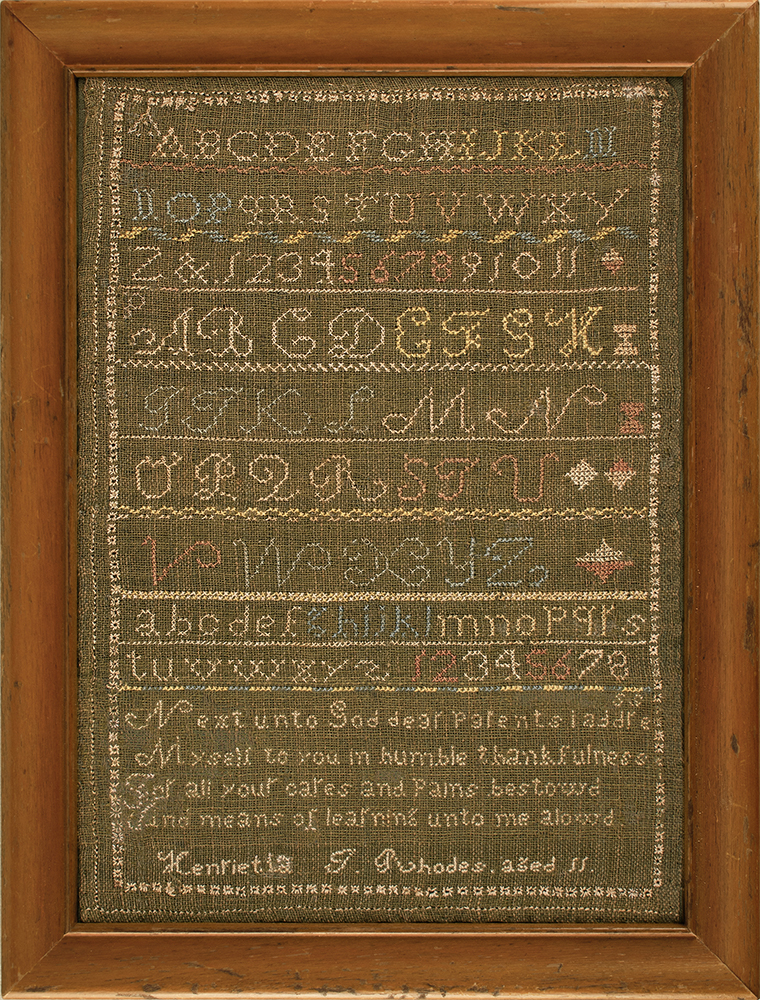 A
ABCDEFGHIJKLM
NOPQRSTUVWXY
Z&1234567891011
ABCDEFGH
IJKLMN
OPQRSTU
VWXYZ
abcdefghijklmnopqrs
tuvwxyz 12345678
ss
Next unto God dear Parents I addre
Myself to you in humble thankfulness
For all your cares and Pains bestowd
And means of learning unto me alowd
Henrietta T. Rhodes. aged 11.